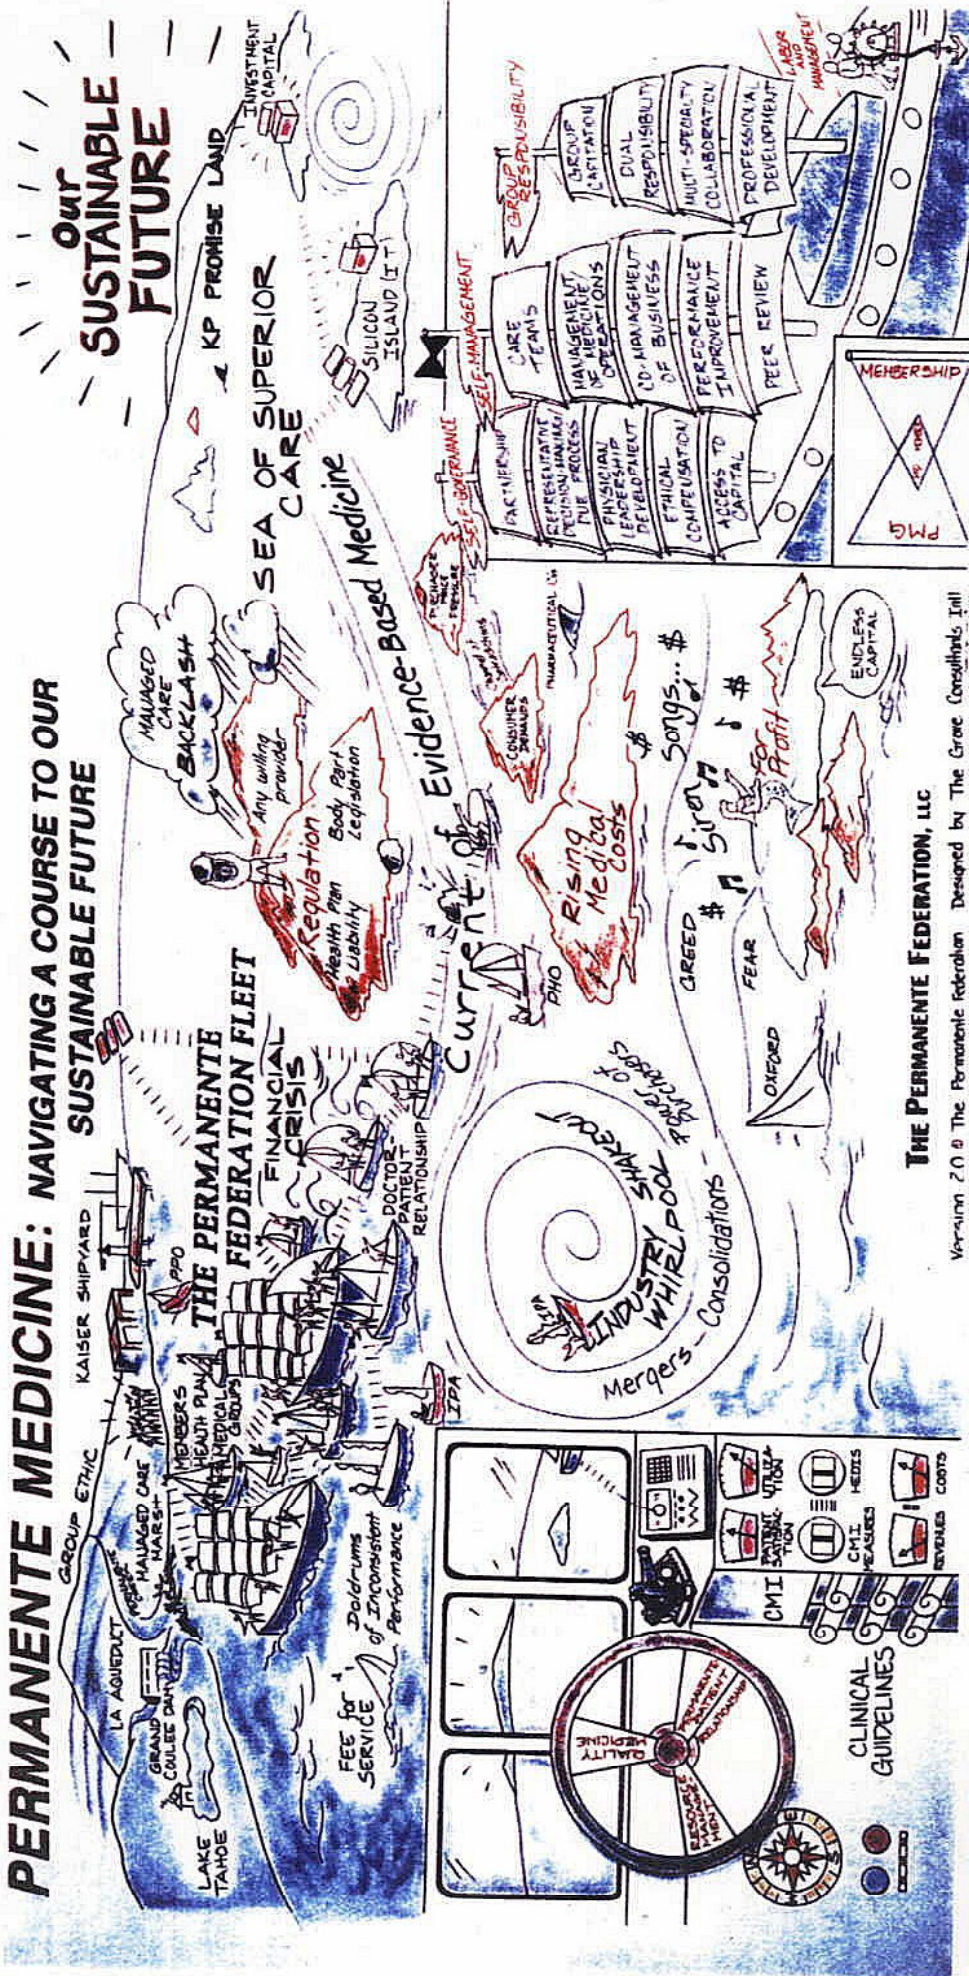 PERMANENTE MEDICINE: NAVIGATING A COURSE TO OUR
SUSTAINABLE FUTURE
Our
SUSTAINABLE
FUTURE
GROUP ETHIC
KAISER SHIPYARD
LA AQUEDUCT
GRAND
COULEE DAM
LAKE
TAHOE
MANAGED CARE
MARSH
MEMBERS
HEALTH PLAN
MEDICAL
GROUPS
PPO
THE PERMANENTE
FEDERATION FLEET
FINANCIAL
CRISIS
DOCTOR-
PATIENT
RELATIONSHIP
FEE for
SERVICE
Doldrums
of Inconsistent
Performance
IPA
MANAGED
CARE
BACKLASH
Any willing
provider
Regulation
Health Plan
Liability
Body Part
Legislation
SEA OF SUPERIOR
CARE
KP PROMISE LAND
INVESTMENT
CAPITAL
SILICON
ISLAND (IT)
Current of Evidence-Based Medicine
PURCHASER
PRICE
PRESSURE
CONSUMER
DEMANDS
Rising
Medical
Costs
PHO
IPA
INDUSTRY SHAKEOUT
WHIRLPOOL
Power of
Purchasers
Mergers - Consolidations -
GREED
FEAR
OXFORD
Siren Songs...
$
$
$
$
For
Profit
ENDLESS
CAPITAL
SELF-GOVERNANCE
PARTNERSHIP
REPRESENTATIVE
DECISION-MAKING/
DUE PROCESS
PHYSICIAN
LEADERSHIP
DEVELOPMENT
ETHICAL
COMPENSATION
ACCESS TO
CAPITAL
SELF-MANAGEMENT
CARE
TEAMS
MANAGEMENT
OF MEDICINE/
OPERATIONS
CO-MANAGEMENT
OF BUSINESS
PERFORMANCE
IMPROVEMENT
PEER REVIEW
GROUP
RESPONSIBILITY
GROUP
CAPITATION
DUAL
RESPONSIBILITY
MULTI-SPECIALTY
COLLABORATION
PROFESSIONAL
DEVELOPMENT
LABOR
AND
MANAGEMENT
PMG
MEMBERSHIP
QUALITY
MEDICINE
RESOURCE
MANAGE-
MENT
PERMANENTE
PATIENT
RELATIONSHIP
CMI
PATIENT
SATISFAC-
TION
UTILIZA
TION
CMI
MEASURES
HEDIS
REVENUES
COSTS
CLINICAL
GUIDELINES
N
E
S
W
THE PERMANENTE FEDERATION, LLC
Version 2.0 © The Permanente Federation Designed by The Grove Consultants Int'l